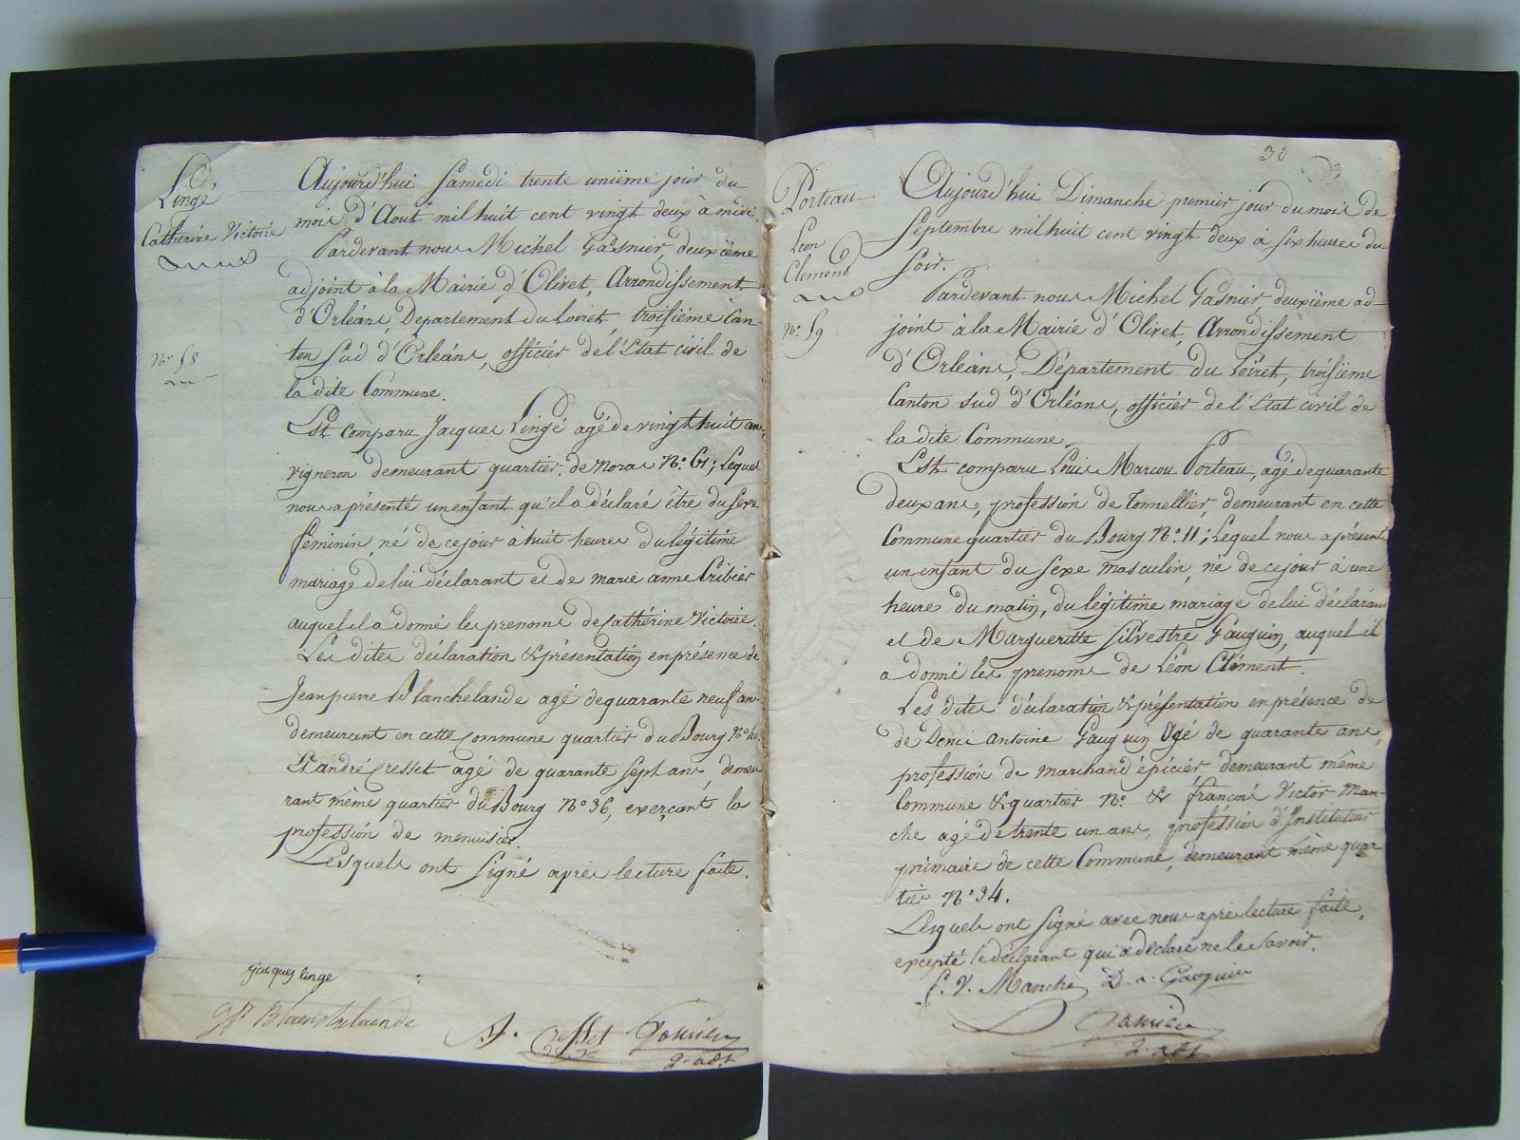 Lingé
Catherine Victoire
N.º 58
Aujourd'hui Samedi trente unième jour du
mois d'Aout mil huit cent vingt deux à midi.
Pardevant nous Michel Gasnier, deuxième
adjoint à la Mairie d'Olivet, Arrondissement
d'Orléans, Departement du Loiret, troisième Can-
ton sud d'Orléans, officier de l'Etat civil de
la dite Commune.
Est comparu Jacques Lingé agé de vingt huit ans,
vigneron demeurant quartier de Noras N.º 61; Lequel
nous a présenté un enfant qu'il a déclaré être du sexe
féminin, né de ce jour à huit heures du légitime
mariage de lui déclarant et de marie anne Cribier
auquel il a donné les prenoms de Cathérine Victoire.
Les dites déclaration & présentation en présence de
Jean pierre Blanchelande agé de quarante neuf ans
demeurant en cette Commune quartier du Bourg N.º
Et andré Cresset agé de quarante sept ans, demeu
rant même quartier du Bourg N.º 36, exerçant la
profession de menuisier.
Lesquels ont Signé après lecture faite.
jacques linge
JP Blanchelande
A. Cresset Gasnier
2. adj.
30
Porteau
Leon
Clement
N.º 59
Aujourd'hui Dimanche premier jour du mois de
Septembre mil huit cent vingt deux à six heures du
Soir.
Pardevant nous Michel Gasnier deuxième ad-
joint à la Mairie d'Olivet, Arrondissement
d'Orléans, Département du Loiret, troisième
Canton sud d'Orléans, officier de l'Etat civil de
la dite Commune.
Est comparu Louis Marcou Porteau, agé de quarante
deux ans, profession de tonnellier, demeurant en cette
Commune quartier du Bourg N.º 11; Lequel nous a présenté
un enfant du sexe masculin, né de ce jour à une
heures du matin, du légitime mariage de lui déclarant
et de Margueritte Silvestre Gauguin, auquel il
a donné les prenoms de Léon Clément.
Les dites déclaration & présentation en présence de
de Denis Antoine Gauguin Agé de quarante ans,
profession de marchand épicier demeurant même
Commune & quartier N.º & françois Victor Man-
che agé de trente un ans, profession d'Instituteur
primaire de cette Commune, demeurant même quar
tier N.º 34.
Lesquels ont signé avec nous après lecture faite,
excepté le déclarant qui a déclaré ne le savoir.
f. V. Manche D. a. Gauguin
Gasnier
2. adj.